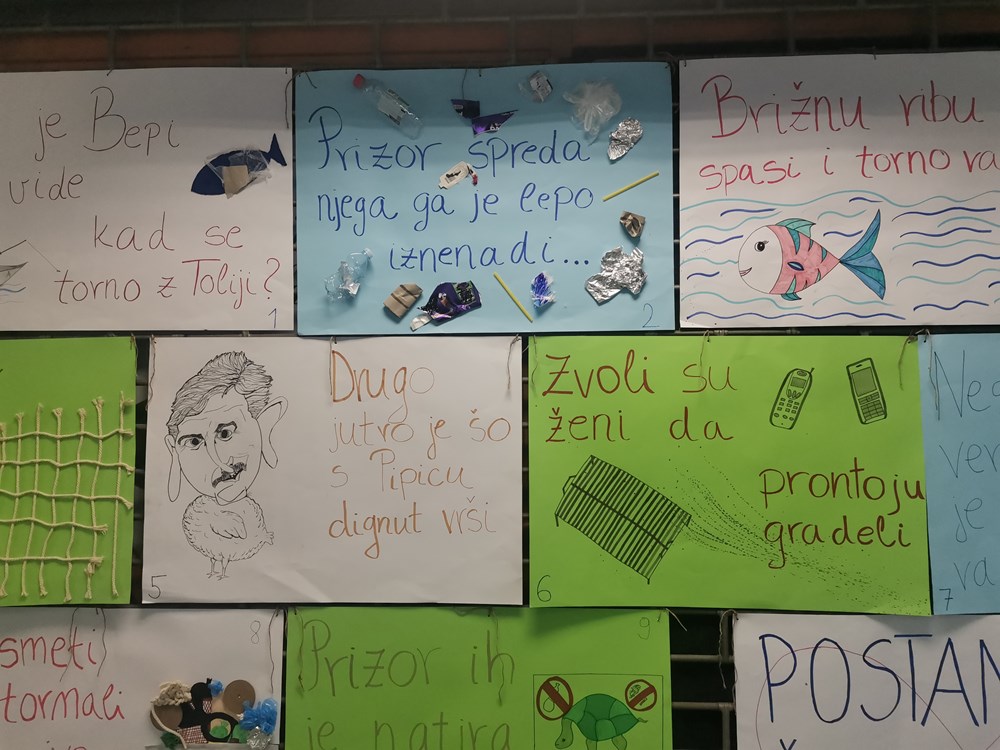 je Bepi
vide
kad se
torno z Toliji?
1
Prizor spreda
njega ga je lepo
iznenadi...
2
Brižnu ribu
spasi i torno va
Drugo
jutro je šo
s Pipicu
dignut vrši
5
Zvoli su
ženi da
prontoju
gradeli
6
ver
je
va
7
smeti
tormali
8
Prizor ih
je natira
9
POSTAN